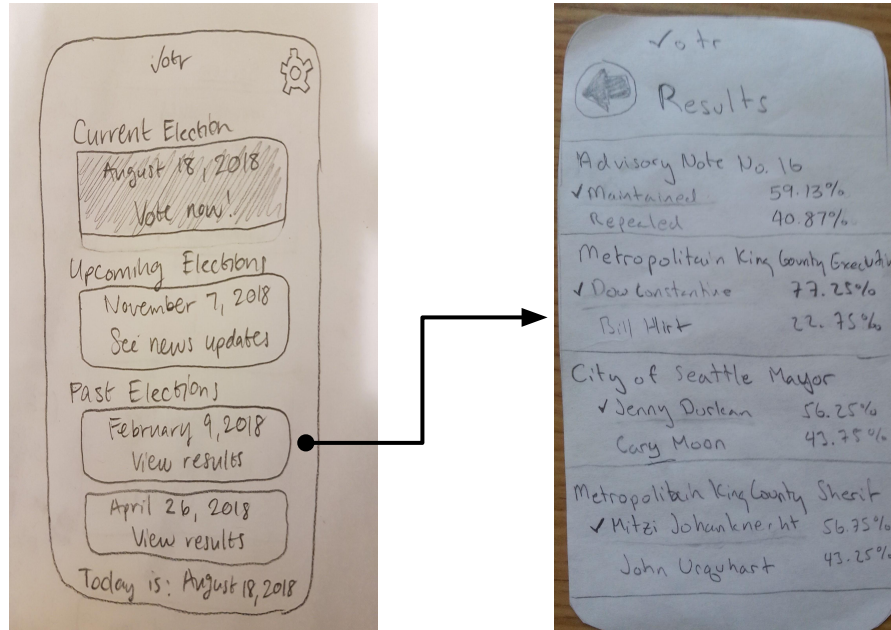 Votr
Current Election
August 18, 2018
Vote now!
Upcoming Elections
November 7, 2018
See news updates
Past Elections
February 9, 2018
View results
April 26, 2018
View results
Today is: August 18, 2018
✓otr
Results
Advisory Note No. 16
✓ Maintained 59.13%
Repealed 40.87%
Metropolitain King County Executiv
✓ Dow Constantine 77.25%
Bill Hirt 22.75%
City of Seattle Mayor
✓ Jenny Durkan 56.25%
Cary Moon 43.75%
Metropolitain King County Sherif
✓ Mitzi Johanknecht 56.75%
John Urquhart 43.25%